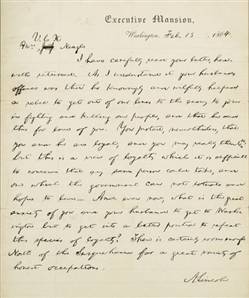 Executive Mansion,
Washington, Feb. 13, 1864.
I have carefully read your letter here-
with returned. As I understand it your husband's
offence was that he knowingly and wilfully helped
a rebel to get out of our lines to the enemy to join
in fighting and killing our people, and that he did
this for love of you. You protest, nevertheless, that
you and he are loyal, and you may really think so,
but this is a view of loyalty which it is difficult
to conceive that any sane person could take, and
one which the government can not tolerate and
hope to live. And even now, what is the great
anxiety of you and your husband to get to Wash-
ington but to get into a better position to repeat
this species of loyalty? There is certainly room enough
North of the Susquehanna for a great variety of
honest occupations.
A. Lincoln